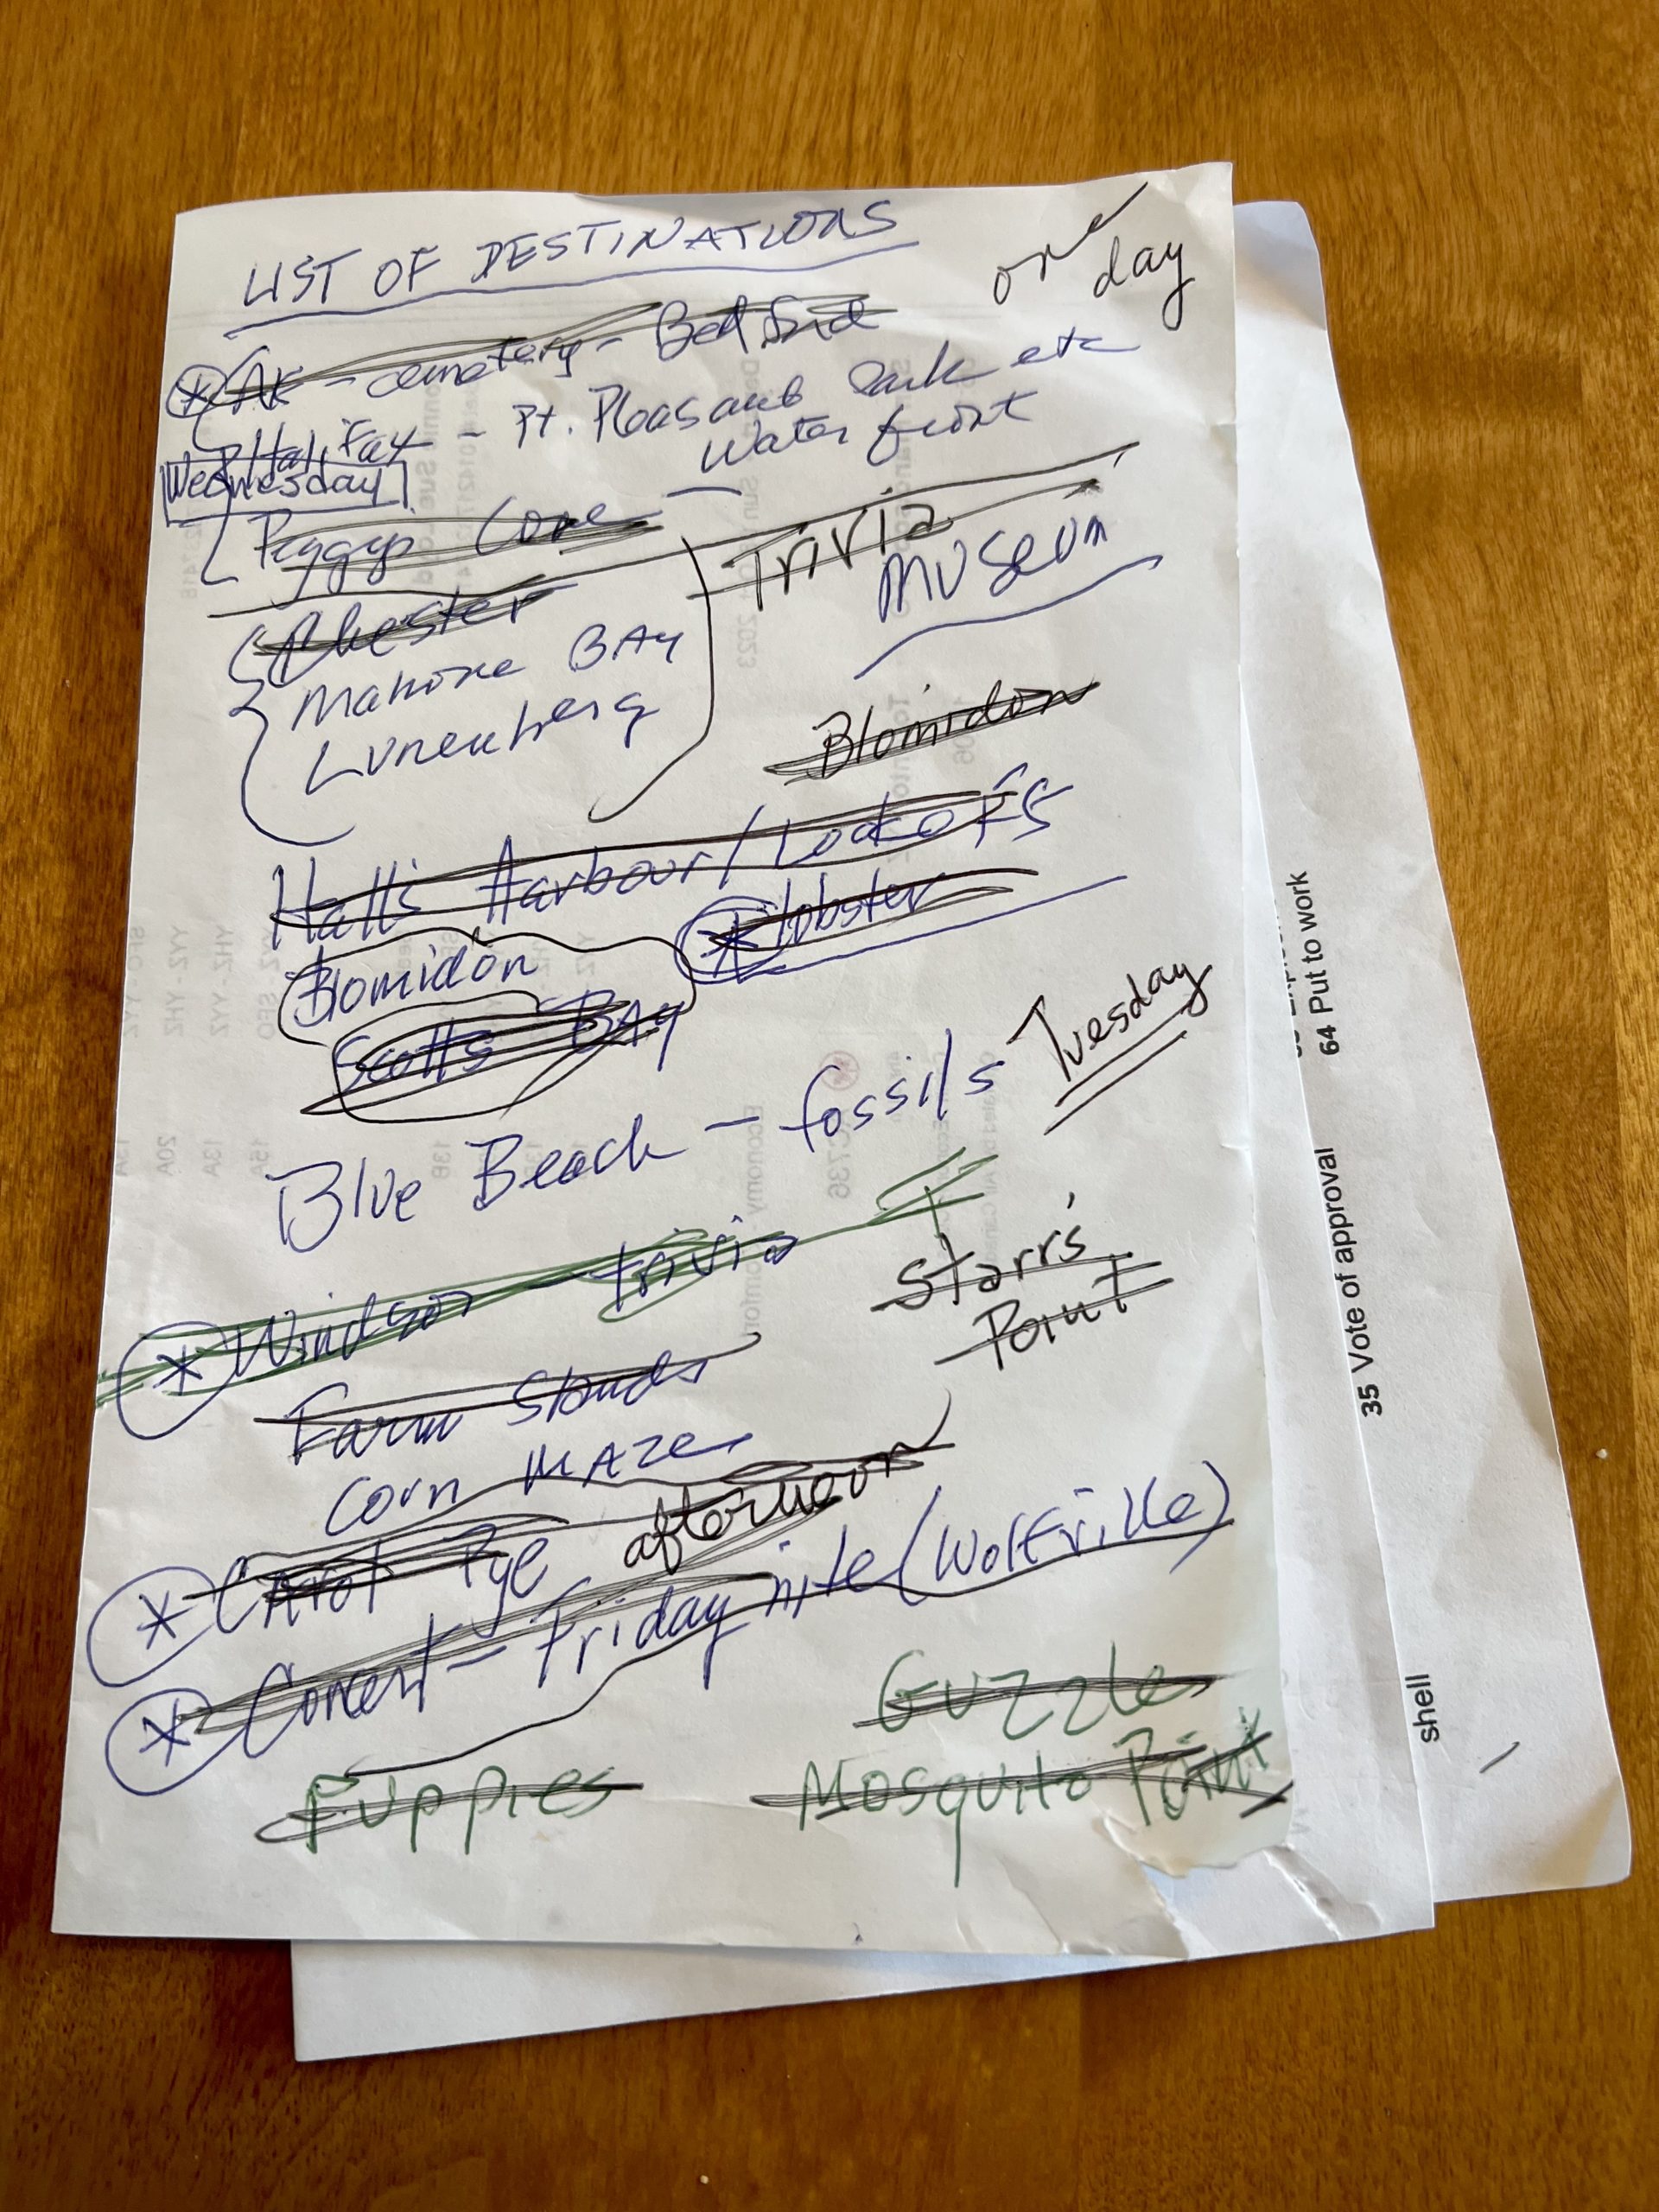 LIST OF DESTINATIONS
one day
* - cemetery - Bedford
Halifax - Pt. Pleasant Park etc
Waterfront
Wednesday
Peggys Cove -
Trivia
Museum
Chester
Mahone BAy
Lunenberg
Blomidon
Halls Harbour/Lookoffs
* Lobster
Blomidon
Scotts BAy
Blue Beach - fossils
Tuesday
* Windsor - trivia
Starr's
Point
Farm Stands
Corn MAze
* Pye afternoon
* Concert - Friday nite (Wolfville)
Guzzle
Puppies
Mosquito Point
64 Put to work
35 Vote of approval
shell